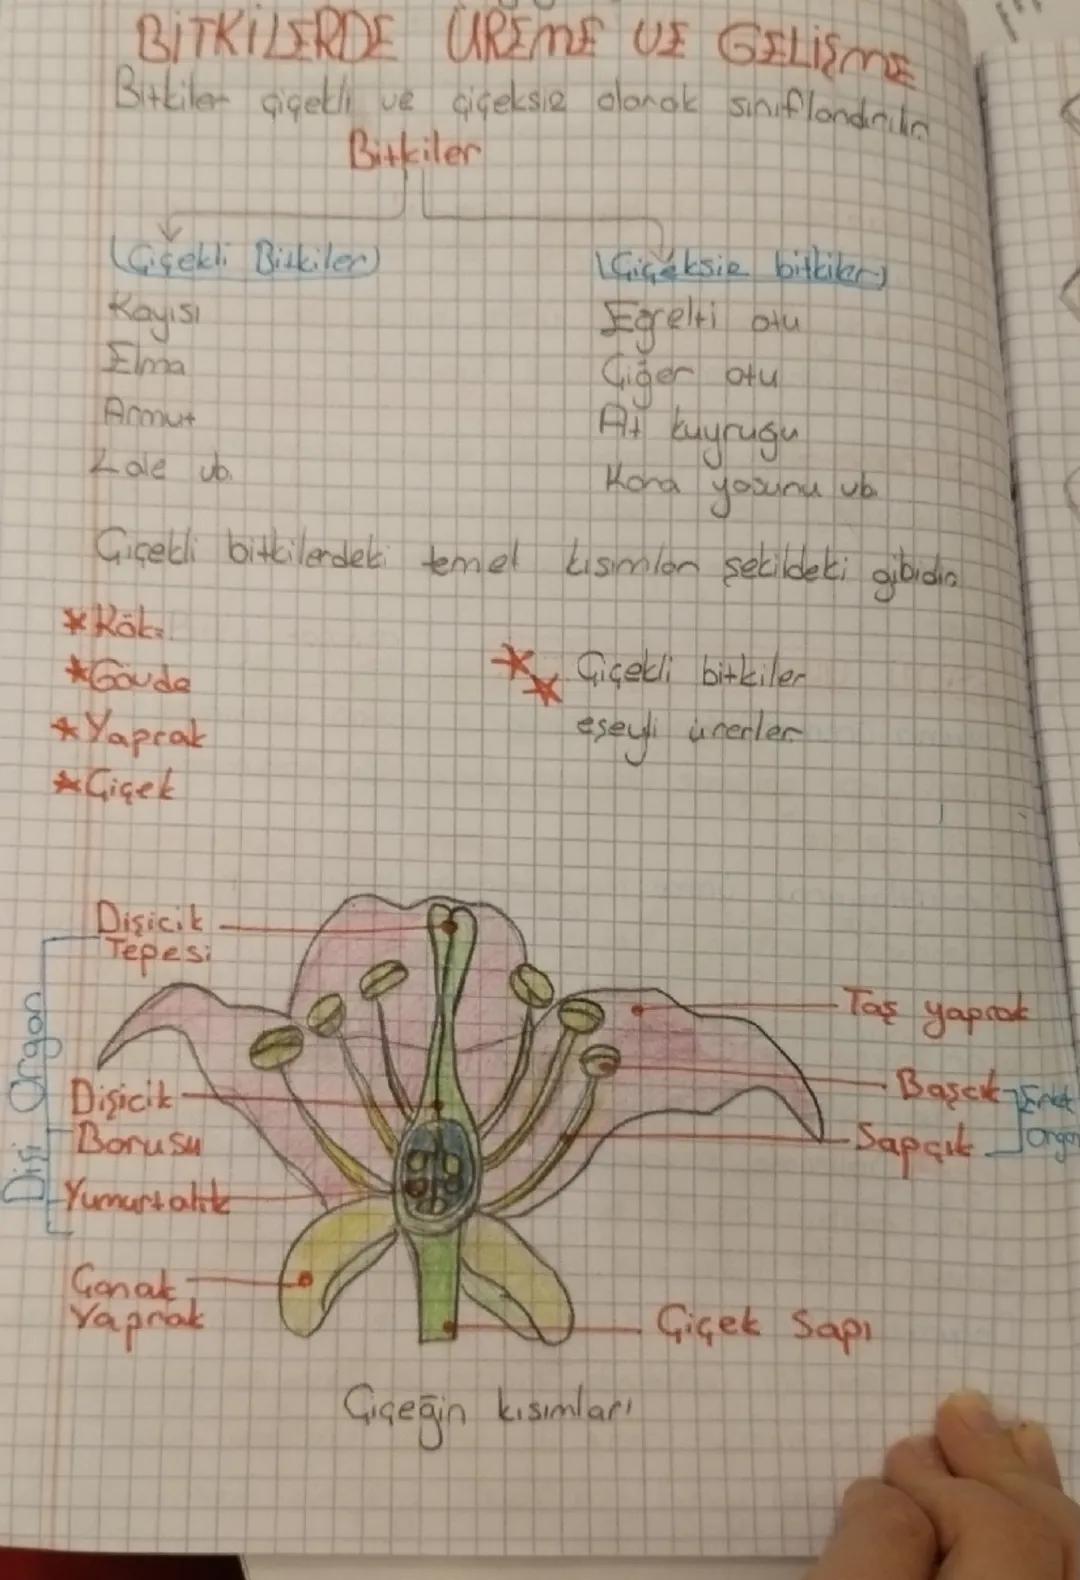 BİTKİLERDE ÜREME VE GELİŞME
Bitkiler çiçekli ve çiçeksiz olarak sınıflandırılır
Bitkiler
(Çiçekli Bitkiler)
Kayısı
Elma
Armut
Lale vb.
(Çiçeksiz bitkiler)
Eğrelti otu
Ciğer otu
At kuyruğu
Kara yosunu vb.
Çiçekli bitkilerdeki temel kısımları şekildeki gibidir.
* Kök
* Gövde
* Yaprak
* Çiçek
** Çiçekli bitkiler
eşeyli ürerler
Dişi Organ
Dişicik
Tepesi
Dişicik
Borusu
Yumurtalık
Çanak
Yaprak
Taş yaprak
Başcık
Sapçık
Erkek
Organ
Çiçek Sapı
Çiçeğin kısımları